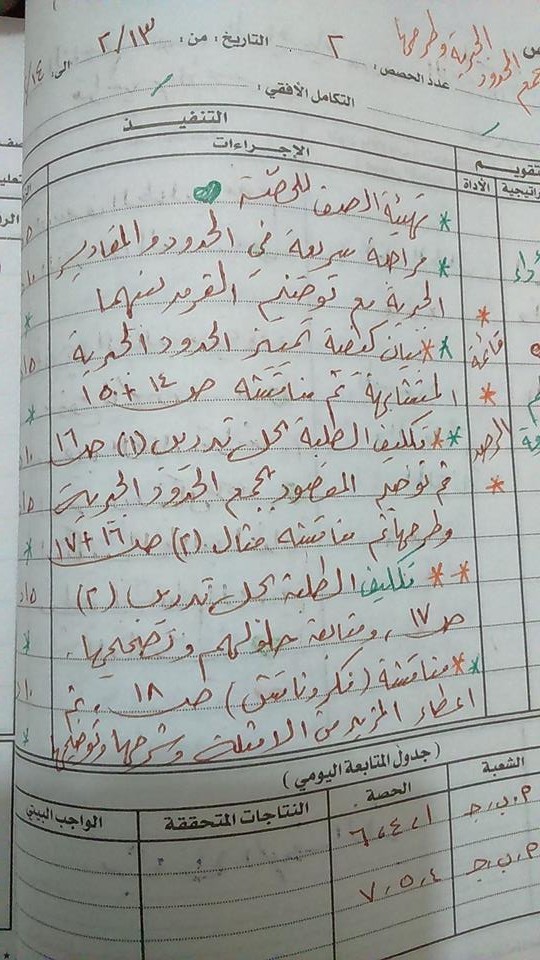 الحدود الجبرية وطرحها
عدد الحصص: ٢ التاريخ: من: ٢/١٣ الى:
التكامل الأفقي:
التنفيذ
التقويم
الإجراءات
الأداة
* تهيئة الصف للحصة
* مراجعة سريعة في الحدود والمقادير
الجبرية مع توضيح الفرق بينهما
** بيان كيفية تمييز الحدود الجبرية
المتشابهة ثم مناقشة ص ١٤ + ١٥
قائمة
الرصد
** تكليف الطلبة حل تدريب (١) ص ١٦
ثم توضيح المقصود بجمع الحدود الجبرية
وطرحها ثم مناقشة مثال (٢) ص ١٦ + ١٧
** تكليف الطلبة حل تدريب (٢)
ص ١٧، ومتابعة حلولهم وتصحيحها.
** مناقشة (فكر وناقش) ص ١٨، ثم
اعطاء المزيد من الامثلة وشرحها وتوضيحها
(جدول المتابعة اليومي)
الشعبة الحصة النتاجات المتحققة الواجب البيتي
أ، ب، ج ١، ٤، ٦
أ، ب، ج ٤، ٥، ٧